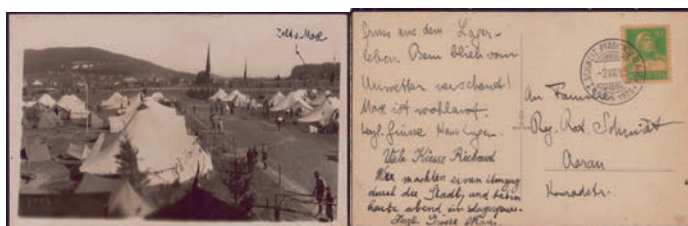 Zelt v Max
Gruss aus dem Lager-
leben. Bern blieb vom
Unwetter verschont!
Max ist wohlauf.
Herzl. Grüsse Hans Eugen.
Viele Küsse Richard
Wir machten einen Umzug
durch die Stadt, und haben
heute abend ein Lagerfeuer.
Herzl. Grüsse Max.
An Familie
Reg. Rat. Schmidt
Aarau